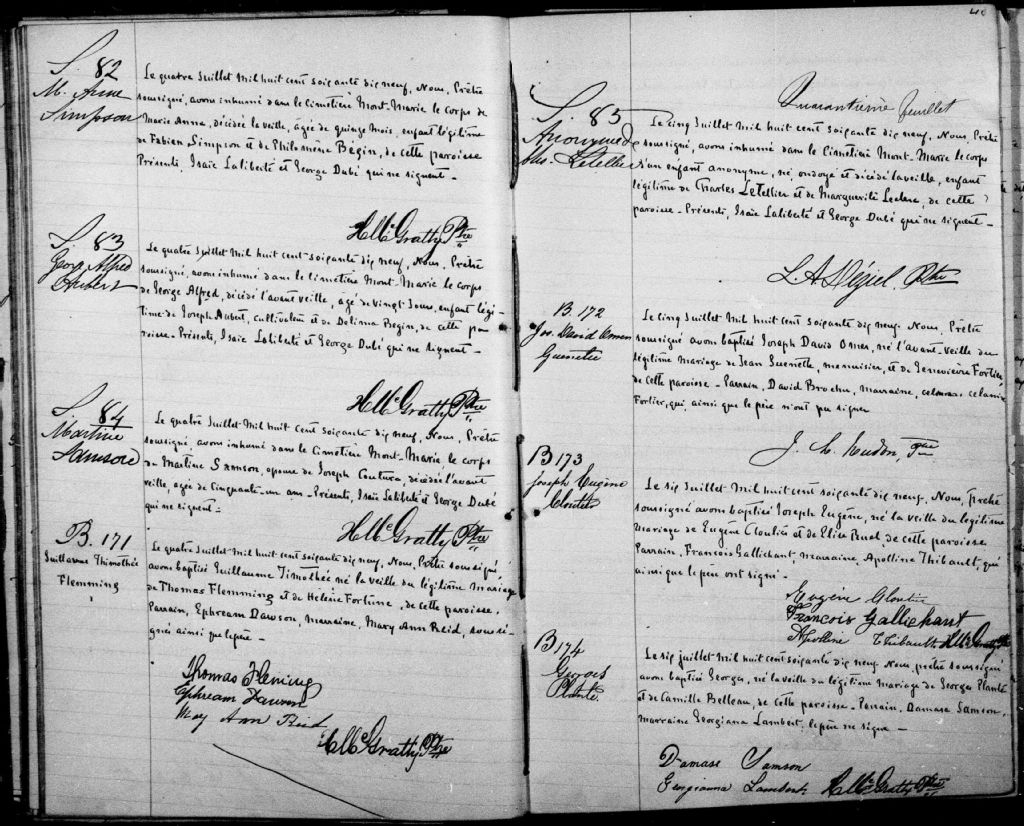 S. 82
M. Anne
Simpson
Le quatre Juillet Mil huit cent soixante dix neuf, Nous, Prêtre
soussigné, avons inhumé dans le cimetière Mont-Marie le corps de
Marie Anna, décédée la veille, agée de quinze mois, enfant légitime
de Fabien Simpson et de Philomène Bégin, de cette paroisse
Présents, Isaïe Laliberté et George Dubé qui ne signent_
McGratty Ptre
S. 83
George Alfred
Aubert
Le quatre Juillet Mil huit cent soixante dix neuf, Nous, Prêtre
soussigné, avons inhumé dans le cimetière Mont-Marie le corps
de George Alfred, décédé l'avant veille, agé de vingt jours, enfant légi-
time de Joseph Aubert, cultivateur et de Delima Bégin, de cette pa
roisse_Présents, Isaïe Laliberté et George Dubé qui ne signent_
McGratty Ptre
S. 84
Martine
Samson
Le quatre Juillet Mil huit cent soixante dix neuf, Nous, Prêtre
soussigné, avons inhumé dans le cimetière Mont-Marie, le corps
de Martine Samson, épouse de Joseph Couture, décédée l'avant
veille, agée de Cinquante-un ans_Présents, Isaïe Laliberté et George Dubé
qui ne signent_
McGratty Ptre
B. 171
Guillaume Thimothée
Flemming
Le quatre Juillet Mil huit cent soixante dix neuf, Nous, Prêtre soussigné
avons baptisé Guillaume Timothée né la veille du légitime mariage
de Thomas Flemming et de Helène Fortune, de cette paroisse,
Parrain, Ephream Dawson, marraine, Mary Ann Reid, soussi-
gnés ainsi que le père_
Thomas Fleming
Ephream Dawson
May Ann Reid
McGratty Ptre
Quarantième feuillet
S. 85
Anonyme de
Chs. Letellier
Le cinq Juillet Mil huit cent soixante dix neuf, Nous, Prêtre
soussigné, avons inhumé dans le Cimetière Mont-Marie le corps
d'un enfant anonyme, né, ondoyé et décédé la veille, enfant
légitime de Charles LeTellier et de Marguerite Leclerc, de cette
paroisse_Présents, Isaïe Laliberté et George Dubé qui ne signent_
L A Déziel, Ptre
B. 172
Jos. David Omer
Guenette
Le cinq Juillet Mil huit cent soixante dix neuf. Nous, Prêtre
soussigné avons baptisé Joseph David Omer, né l'avant-veille du
légitime mariage de Jean Guenette, menuisier, et de Genevieve Fortier,
de cette paroisse_Parrain, David Brochu, marraine, Célanire
Fortier, qui ainsi que le père n'ont pu signer
J. Ptre
B 173
Joseph Eugène
Cloutier
Le six Juillet Mil huit cent soixante dix neuf, Nous, prêtre
soussigné avons baptisé Joseph Eugène, né la veille du légitime
mariage de Eugène Cloutier et de Eliza Ruel de cette paroisse
Parrain, François Gallichant, marraine, Apolline Thibault, qui
ainsi que le père ont signé_
Eugène Cloutier
François Gallichant
Apolline Thibault McGratty
B 174
Georges
Plante.
Le six juillet Mil huit cent soixante dix neuf Nous, prêtre soussigné
avons baptisé Georges, né la veille du légitime mariage de Georges Plante
et de Camille Belleau, de cette paroisse_Parrain, Damase Samson,
marraine Georgiana Lambert, le père ne signe_
Damase Samson
Georgianna Lambert McGratty Ptre